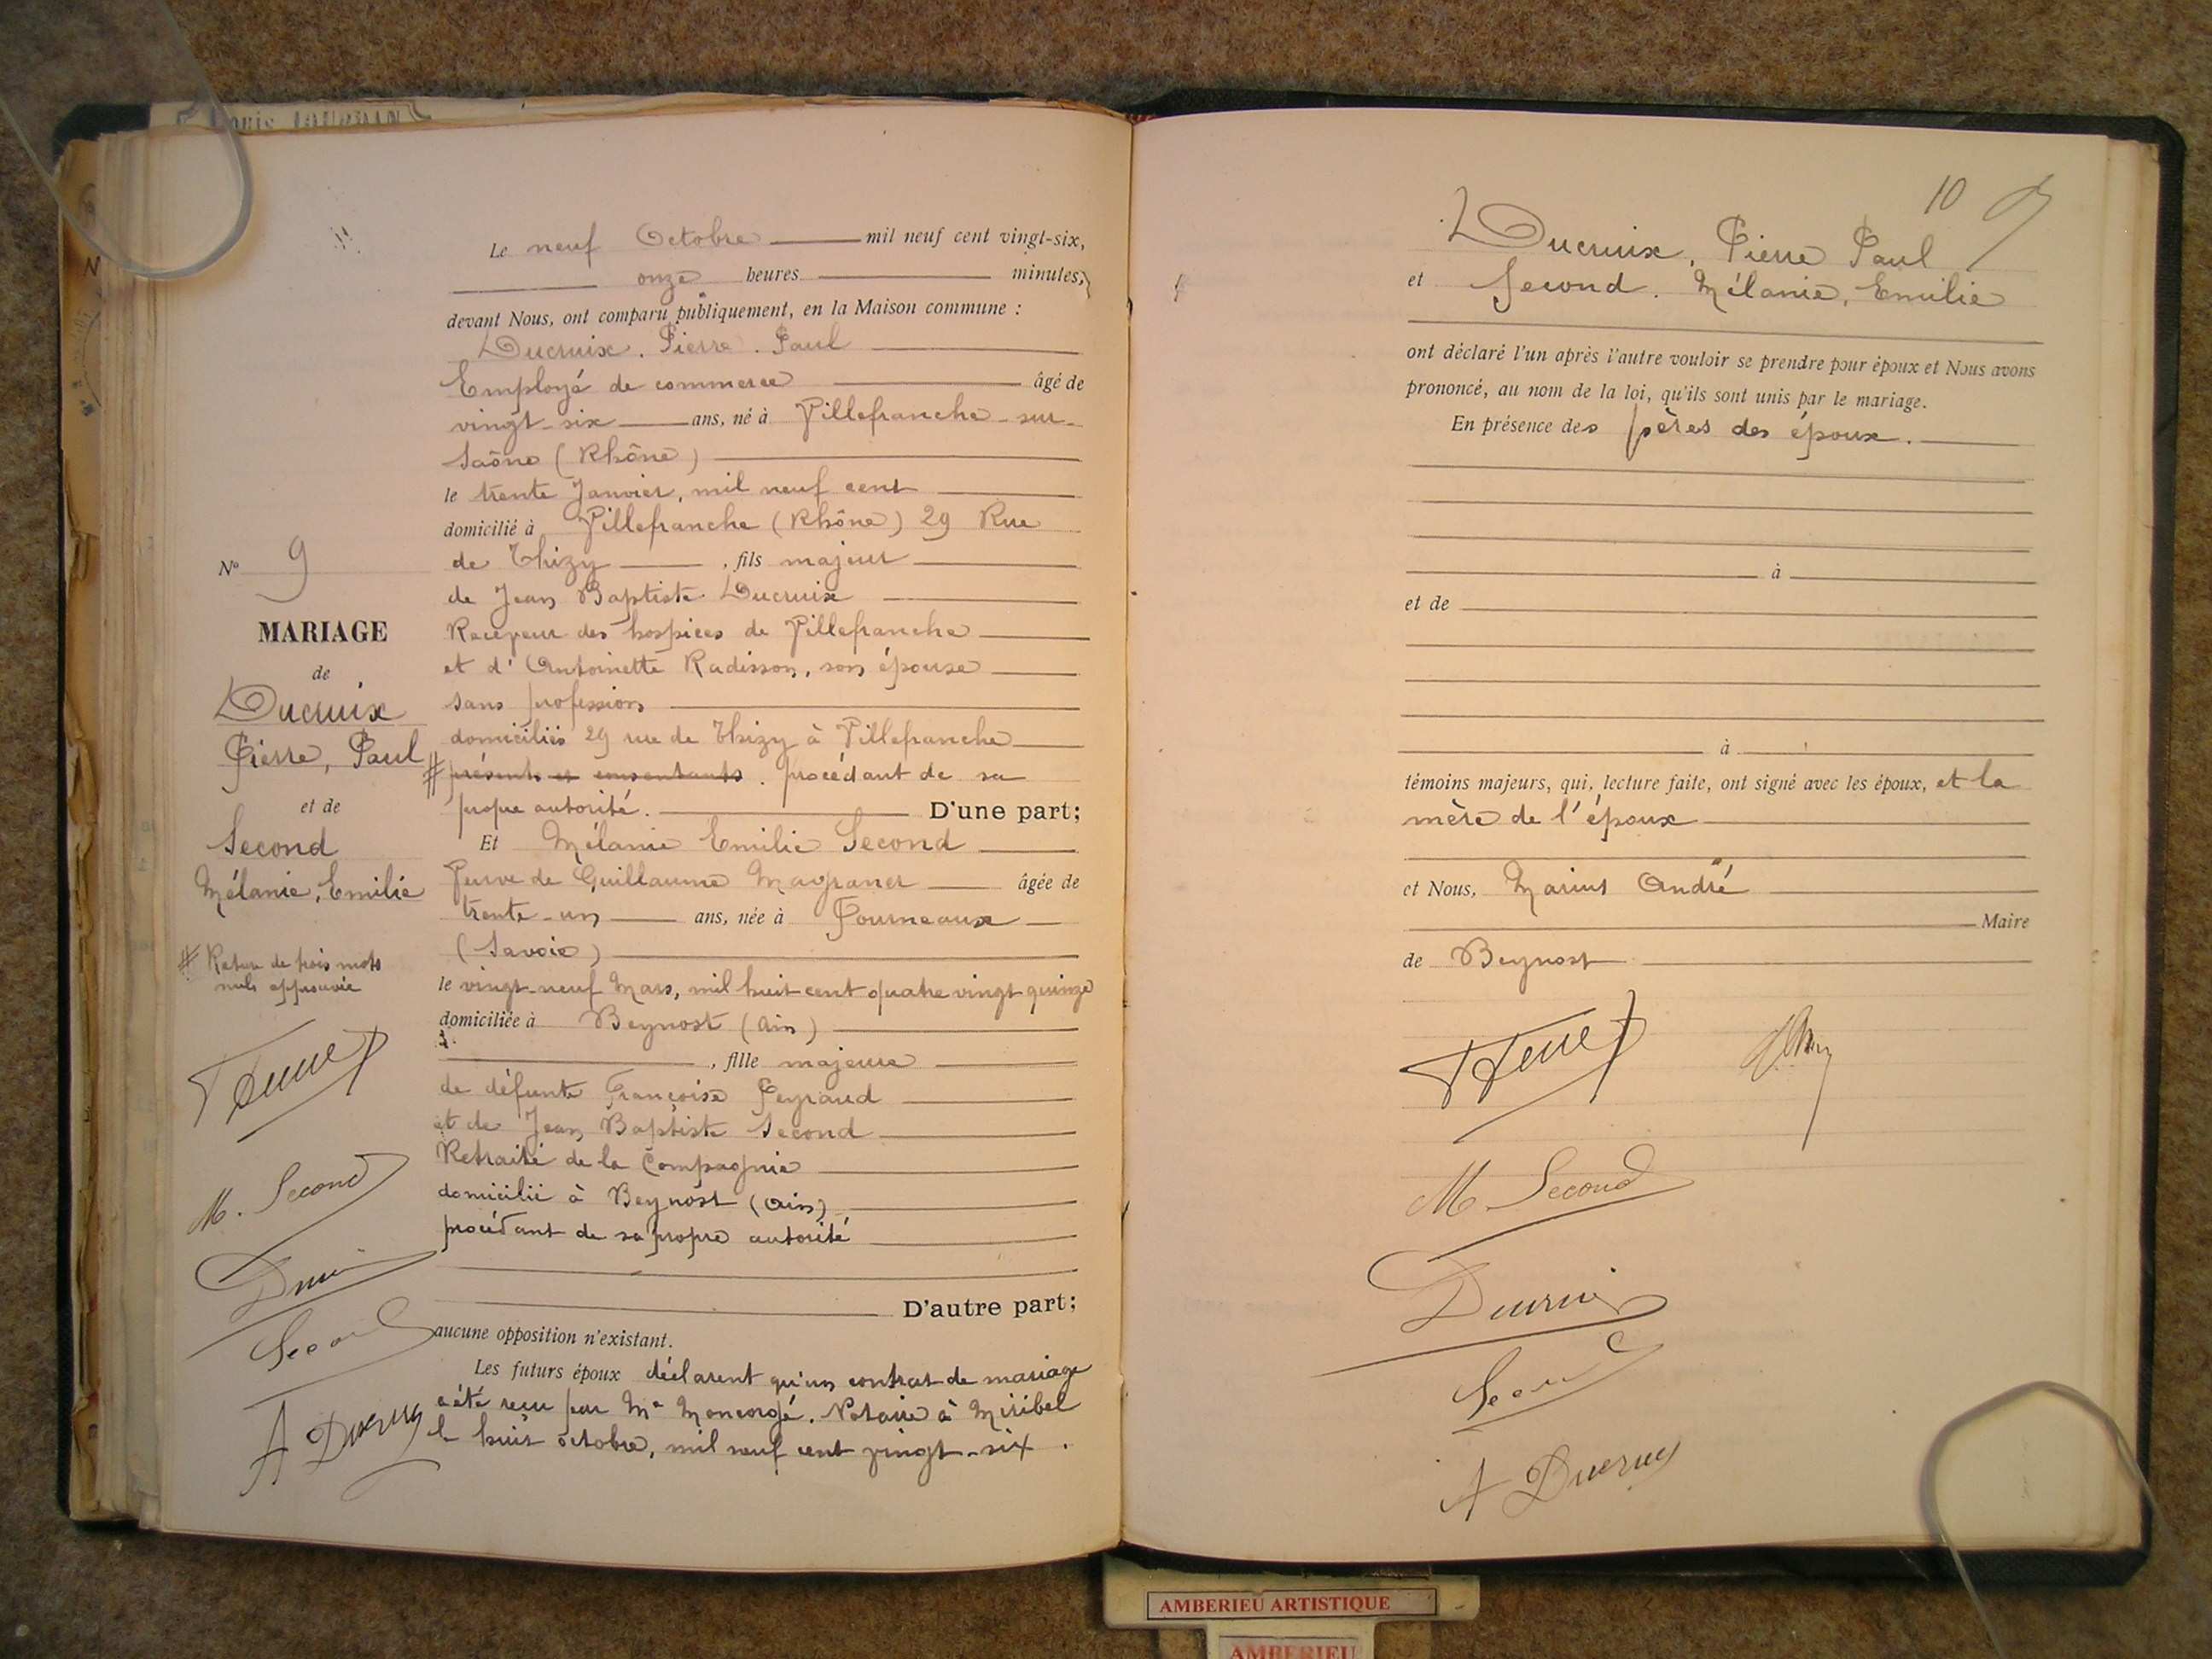 Louis JOURDAIN
Le neuf Octobre mil neuf cent vingt-six,
onze heures minutes,
devant Nous, ont comparu publiquement, en la Maison commune :
Ducruix. Pierre. Paul
Employé de commerce âgé de
vingt-six ans, né à Villefranche-sur-
Saône (Rhône)
le trente Janvier, mil neuf cent
domicilié à Villefranche (Rhône) 29 Rue
de Thizy , fils majeur
de Jean Baptiste Ducruix
Receveur des hospices de Villefranche
et d'Antoinette Radisson, son épouse
sans profession
domiciliés 29 rue de Thizy à Villefranche
# présents et consentants. procédant de sa
propre autorité. D'une part;
Et Mélanie Emilie Second
Veuve de Guillaume Magraner âgée de
trente-un ans, née à Fourneaux
(Savoie)
le vingt-neuf Mars, mil huit cent quatre vingt quinze
domiciliée à Beynost (Ain)
, fille majeure
de défunte Françoise Peyraud
et de Jean Baptiste Second
Retraité de la Compagnie
domicilié à Beynost (Ain)
procédant de sa propre autorité
D'autre part;
aucune opposition n'existant.
Les futurs époux déclarent qu'un contrat de mariage
a été reçu par Me Moncorgé. Notaire à Miribel
le huit octobre, mil neuf cent vingt-six.
No 9
MARIAGE
de
Ducruix
Pierre, Paul
et de
Second
Mélanie, Emilie
# Rature de trois mots
nuls approuvée
M. Second
Second
A Ducruix
10
Ducruix, Pierre Paul
et Second. Mélanie, Emilie
ont déclaré l'un après l'autre vouloir se prendre pour époux et Nous avons
prononcé, au nom de la loi, qu'ils sont unis par le mariage.
En présence des pères des époux.
à
et de
à
témoins majeurs, qui, lecture faite, ont signé avec les époux, et la
mère de l'époux
et Nous, Marius André
Maire
de Beynost
M. Second
Second
A Ducruix
AMBERIEU ARTISTIQUE
AMBERIEU